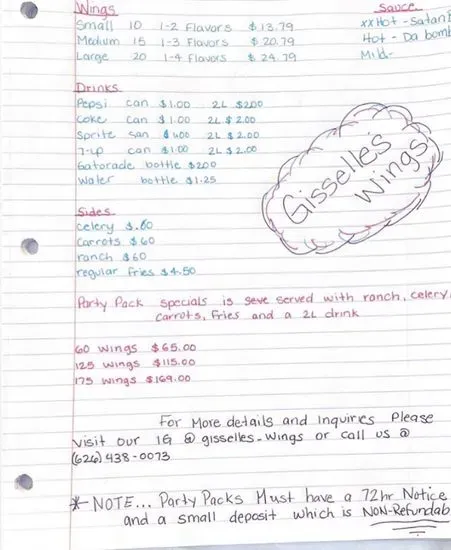 Wings
Small 10 1-2 Flavors $13.79
Medium 15 1-3 Flavors $20.79
Large 20 1-4 Flavors $24.79
Sauce
xxHot - Satan
Hot - Da bomb
Mild-
Drinks
Pepsi can $1.00 2L $2.00
Coke can $1.00 2L $2.00
Sprite san $1.00 2L $2.00
7-up can $1.00 2L $2.00
Gatorade bottle $2.00
Water bottle $1.25
Gisselle's
Wings
Sides
celery $.60
Carrots $.60
ranch $.60
regular fries $4.50
Party Pack specials is seve served with ranch, celery,
carrots, fries and a 2L drink
60 wings $65.00
125 wings $115.00
175 wings $169.00
For More details and inquiries Please
visit our IG @ gisselles-wings or call us @
(626) 438-0073
* NOTE... Party Packs Must have a 72hr Notice
and a small deposit which is NON-Refundab